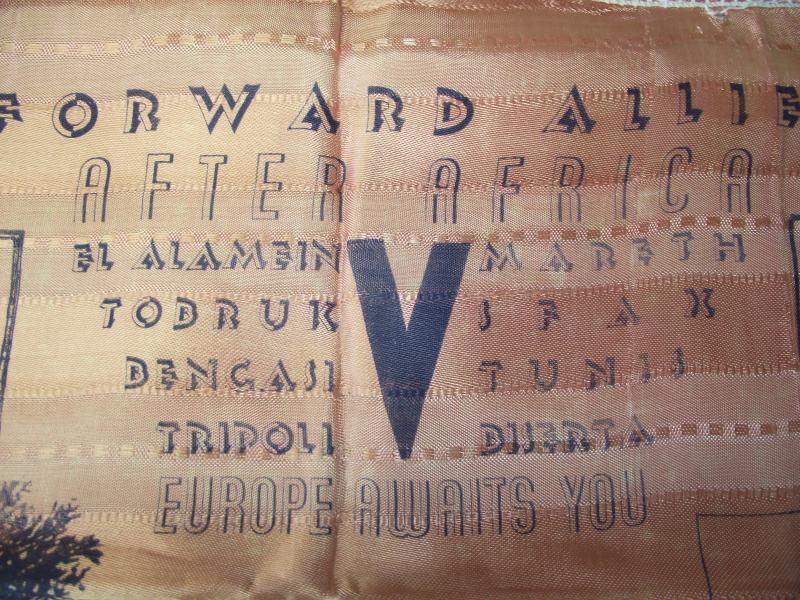 FORWARD ALLIE
AFTER AFRICA
EL ALAMEIN V MARETH
TOBRUK SFAX
BENGASI TUNIS
TRIPOLI BISERTA
EUROPE AWAITS YOU